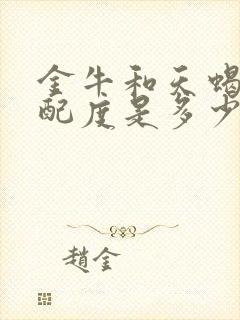 金牛和天蝎
配度是多少
趙金